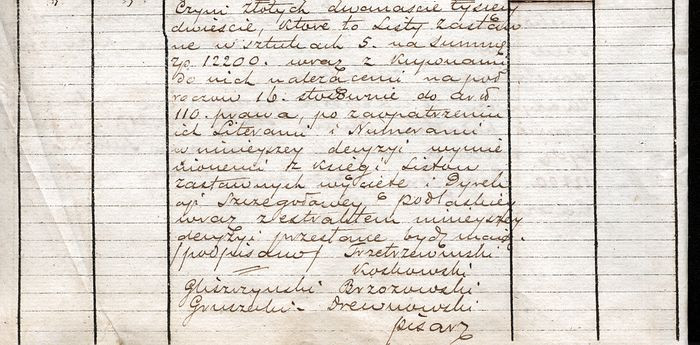 czyni złotych dwanaście tysięcy
dwieście, które to Listy zastaw
ne w sztukach 5. na summę
zp. 12200. wraz z Kuponami
do nich należącemi na pół
roczów 16. stosownie do art
110. prawa, po zaopatrzeniu
ich Literami i Numerami
w niniejszey decyzyi wymie
nionemi z Księgi Listów
zastawnych wycięte i Dyrek
cyi Szczegółowey podlaskiey
wraz z extraktem niniejszey
decyzyi przesłane bydź maią.
/podpisano/ Trzetrzewiński
Koskowski
Gliszczyński Brzozowski
Gruszecki Drewnowski
pisarz